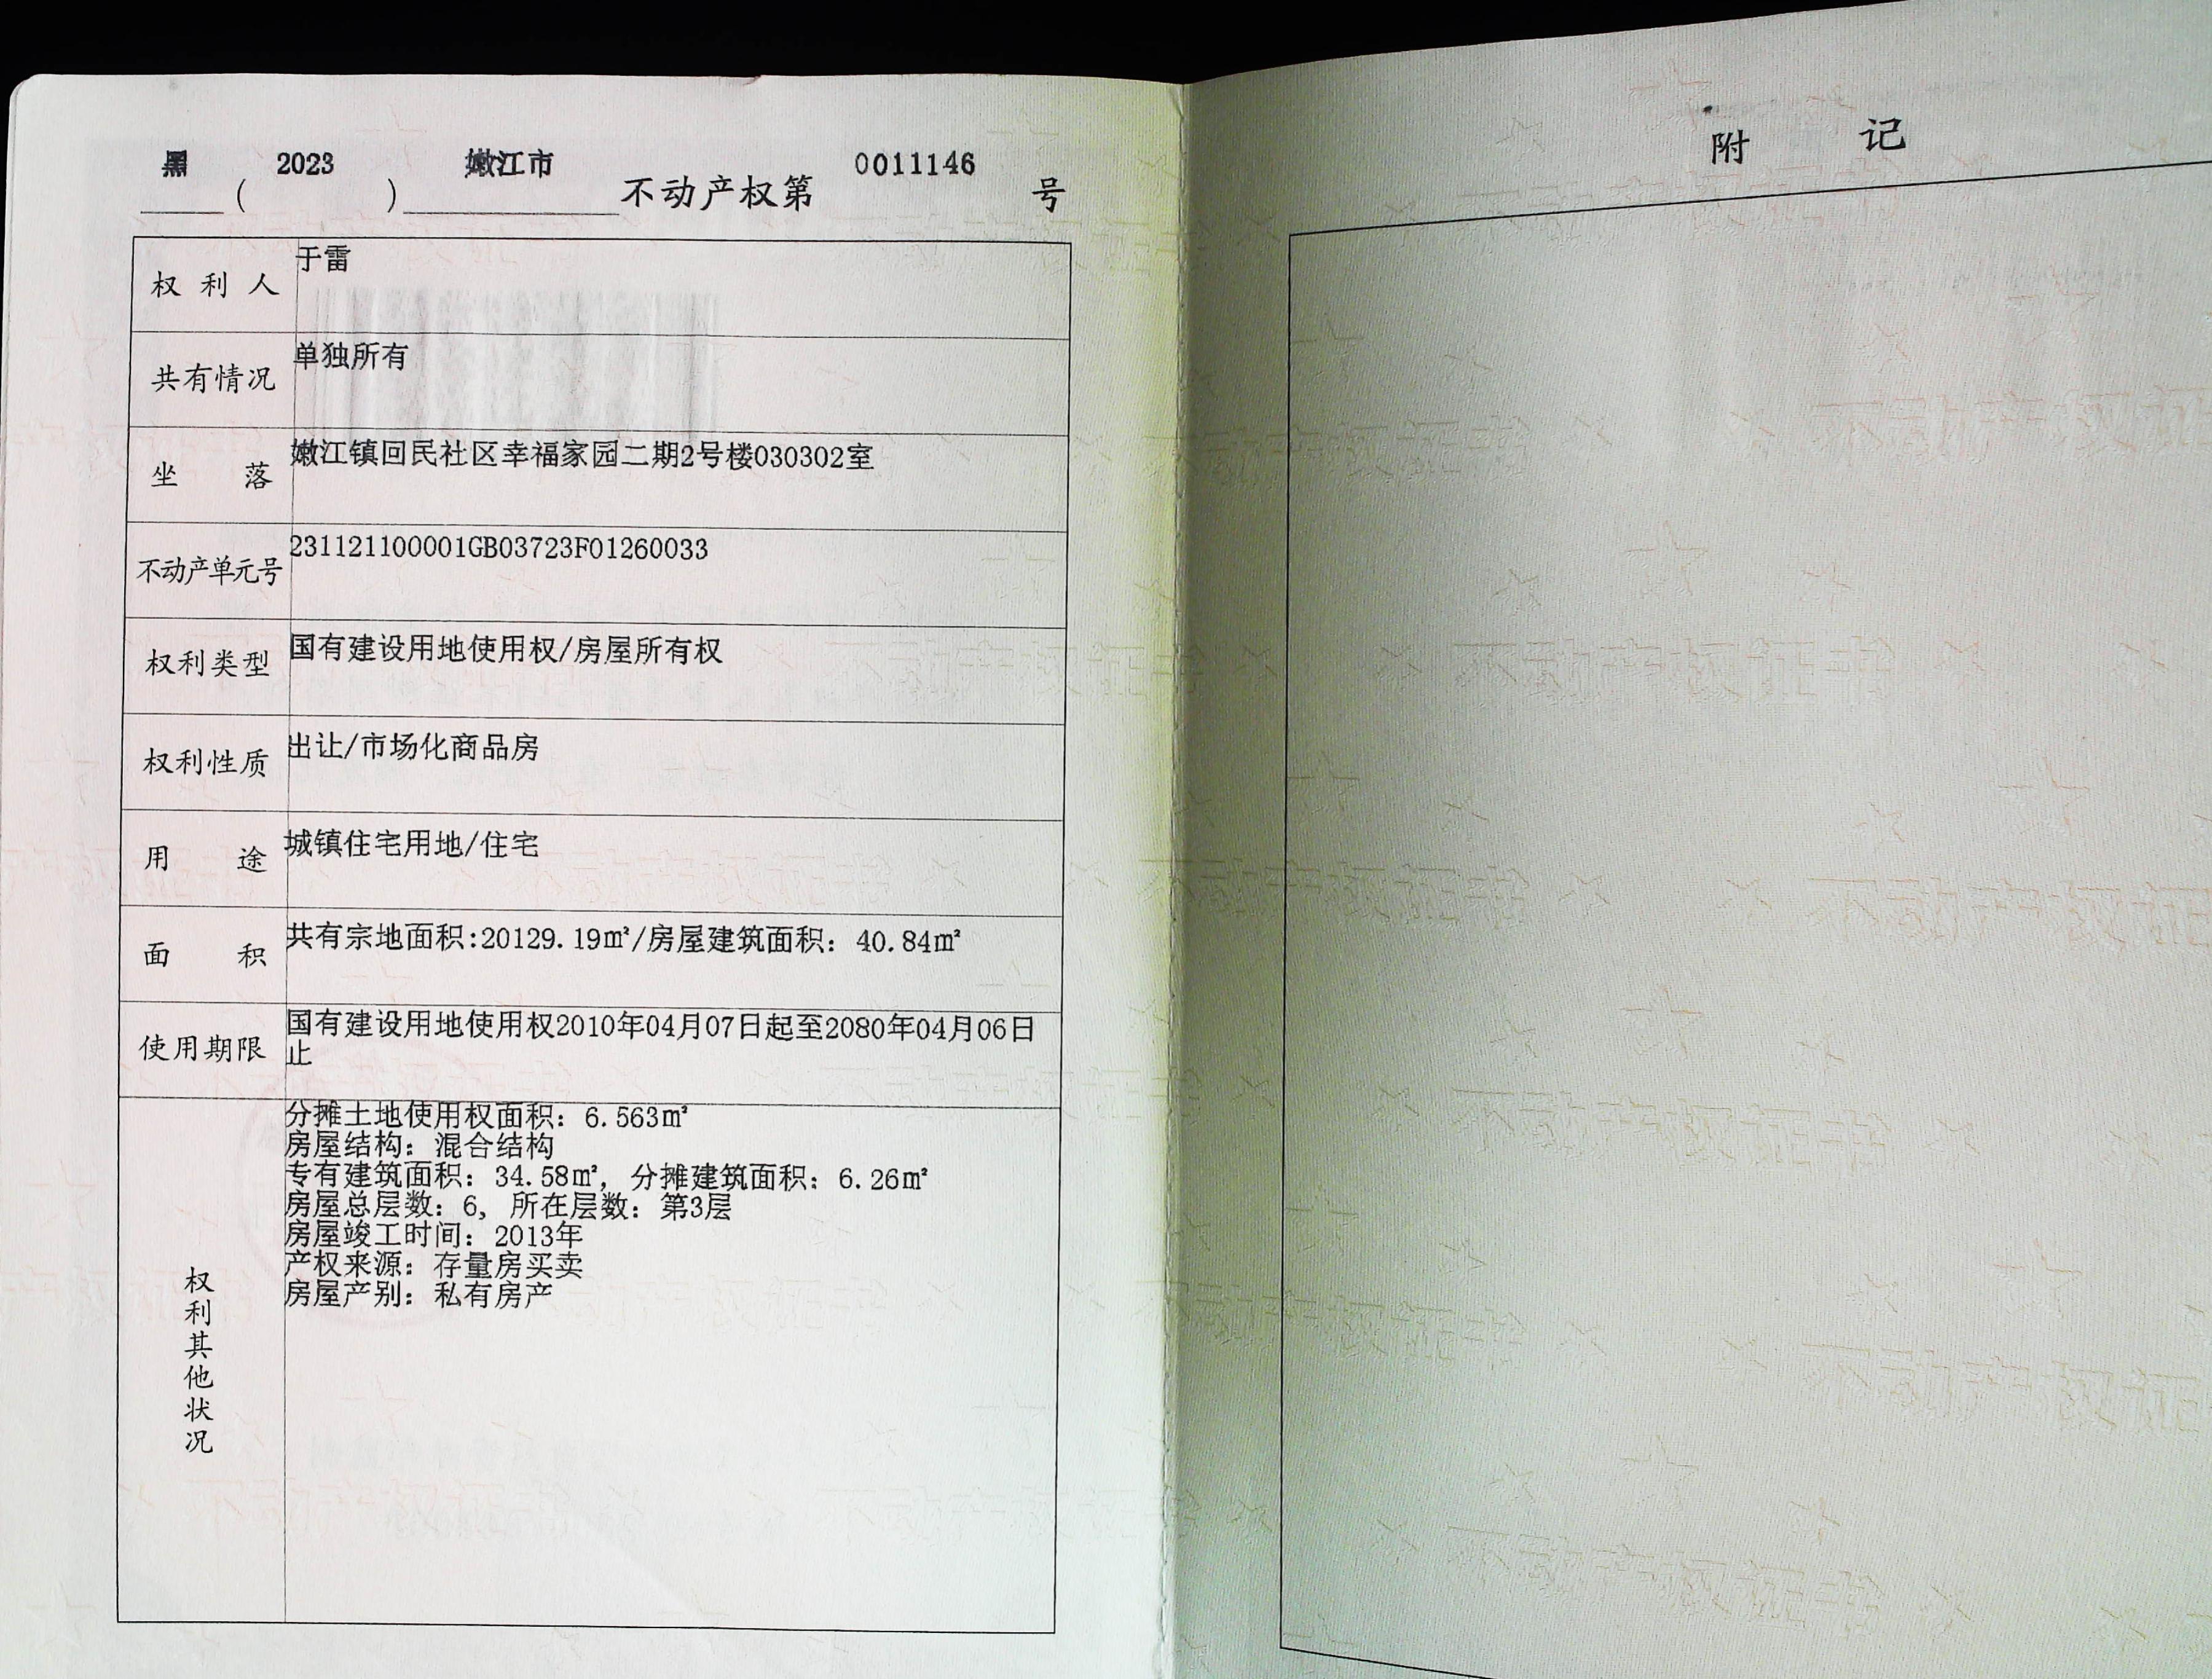 黑 ( 2023 ) 嫩江市 不动产权第 0011146 号
权利人 于雷
共有情况 单独所有
坐落 嫩江镇回民社区幸福家园二期2号楼030302室
不动产单元号 231121100001GB03723F01260033
权利类型 国有建设用地使用权/房屋所有权
权利性质 出让/市场化商品房
用途 城镇住宅用地/住宅
面积 共有宗地面积:20129.19㎡/房屋建筑面积：40.84㎡
使用期限 国有建设用地使用权2010年04月07日起至2080年04月06日
止
权利其他状况
分摊土地使用权面积：6.563㎡
房屋结构：混合结构
专有建筑面积：34.58㎡，分摊建筑面积：6.26㎡
房屋总层数：6，所在层数：第3层
房屋竣工时间：2013年
产权来源：存量房买卖
房屋产别：私有房产
附记